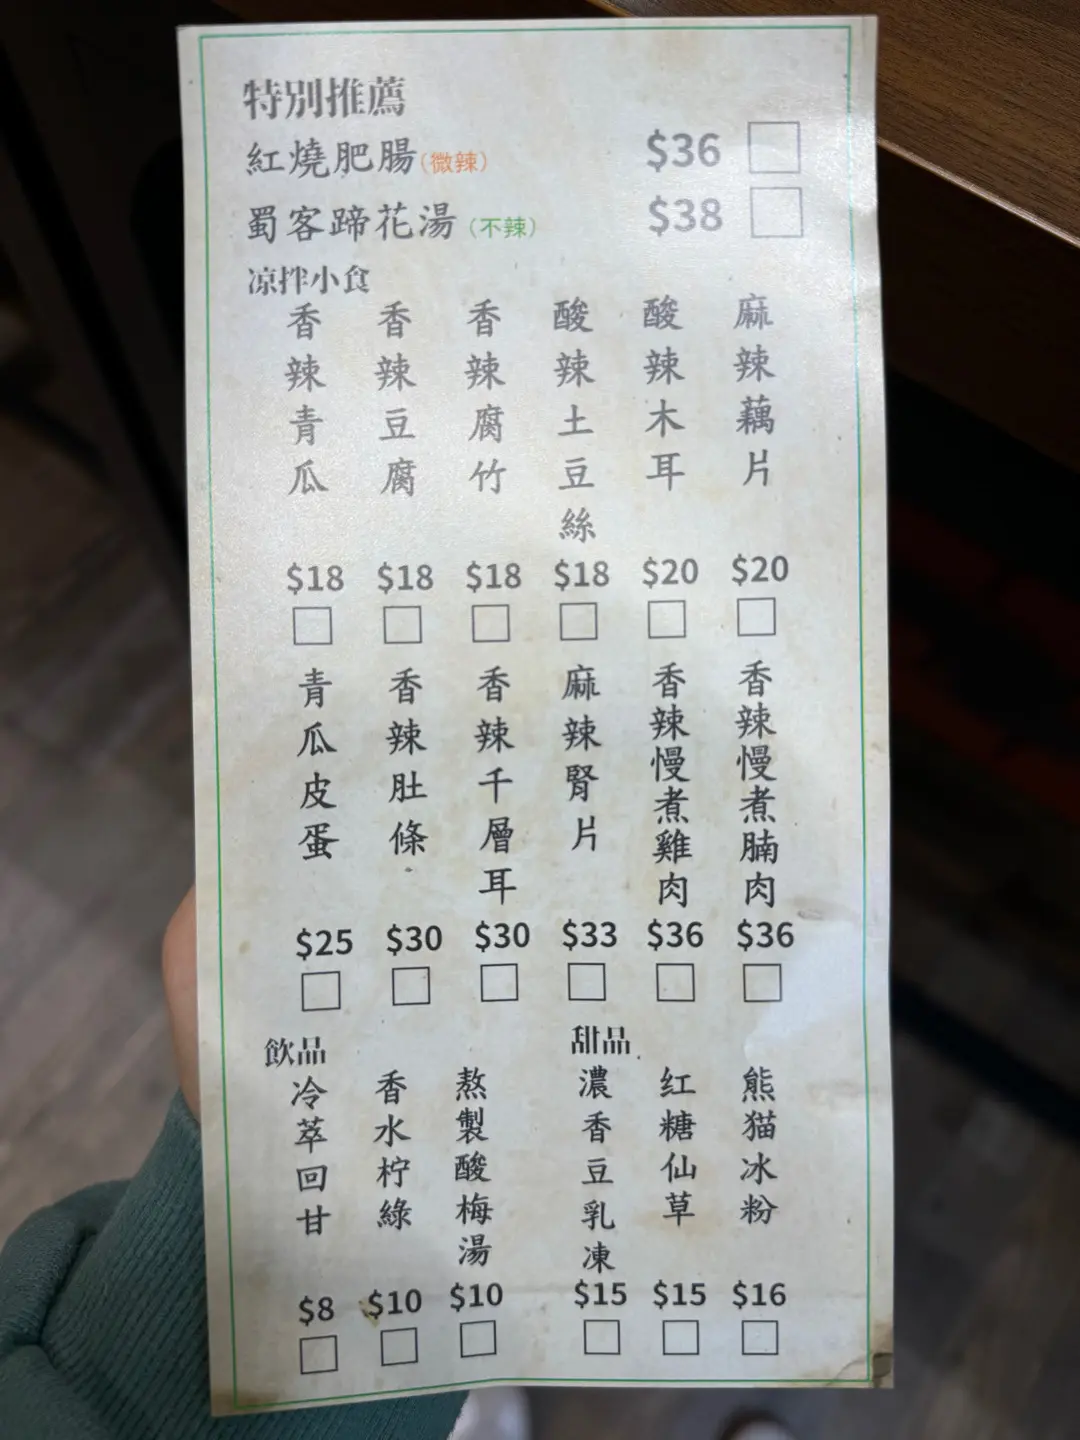 特別推薦
紅燒肥腸(微辣) $36
蜀客蹄花湯(不辣) $38
凉拌小食
香辣青瓜 $18
香辣豆腐 $18
香辣腐竹 $18
酸辣土豆絲 $18
酸辣木耳 $20
麻辣藕片 $20
青瓜皮蛋 $25
香辣肚條 $30
香辣千層耳 $30
麻辣腎片 $33
香辣慢煮雞肉 $36
香辣慢煮腩肉 $36
飲品
冷萃回甘 $8
香水柠綠 $10
熬製酸梅湯 $10
甜品
濃香豆乳凍 $15
红糖仙草 $15
熊猫冰粉 $16